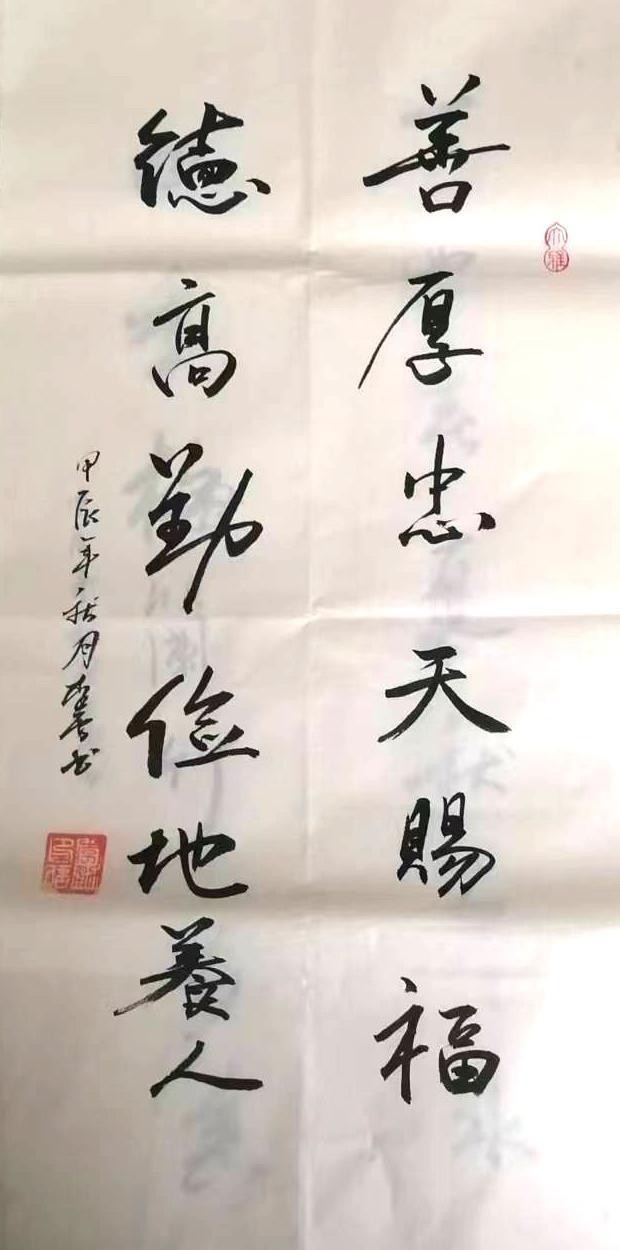 善厚忠天賜福
德高勤儉地養人
甲辰年秋月
书
大雅